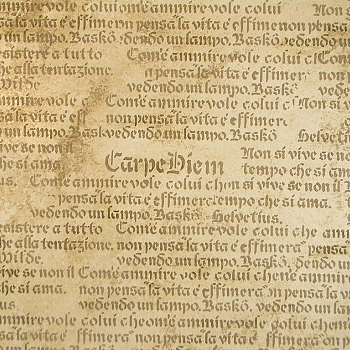 com'e ammirevole colui Non si
vole colui c non pensa la vita è effimera non pensa la
un lampo. Baskó vedendo un lampo. Baskó vedendo un
esistere a tutto Com'e ammirevole colui c
he alla tentazione. a pensa la vita è effimera non
Wilde vedendo un lampo. Baskó
mmirevole c Com'e ammirevole colui c Non si vive
è effi non pensa la vita è effimera
un lampo. Bask vedendo un lampo. Baskó Helvetius
che si vive se non il
che si ama. Carpe Diem Non si vive se
tempo che si ama
us. Com'e ammirevole colui che n si vive se non il
pensa la vita è effimera tempo che si ama
vedendo un lampo. Baskó Helvetius.
esistere a tutto Com'e ammirevole colui che am
he alla tentazione. non pensa la vita è effimera pensa
Wilde. vedendo un lampo. Baskó. dendo un
vive se non il Com'e ammirevole colui che m'e ammire
si ama. non pensa la vita è effimera non pensa la
us vedendo un lampo. Baskó vedendo un lam
mmirevole colui che om'e ammirevole colui
a la vita è effimera non pensa la vita è effimera